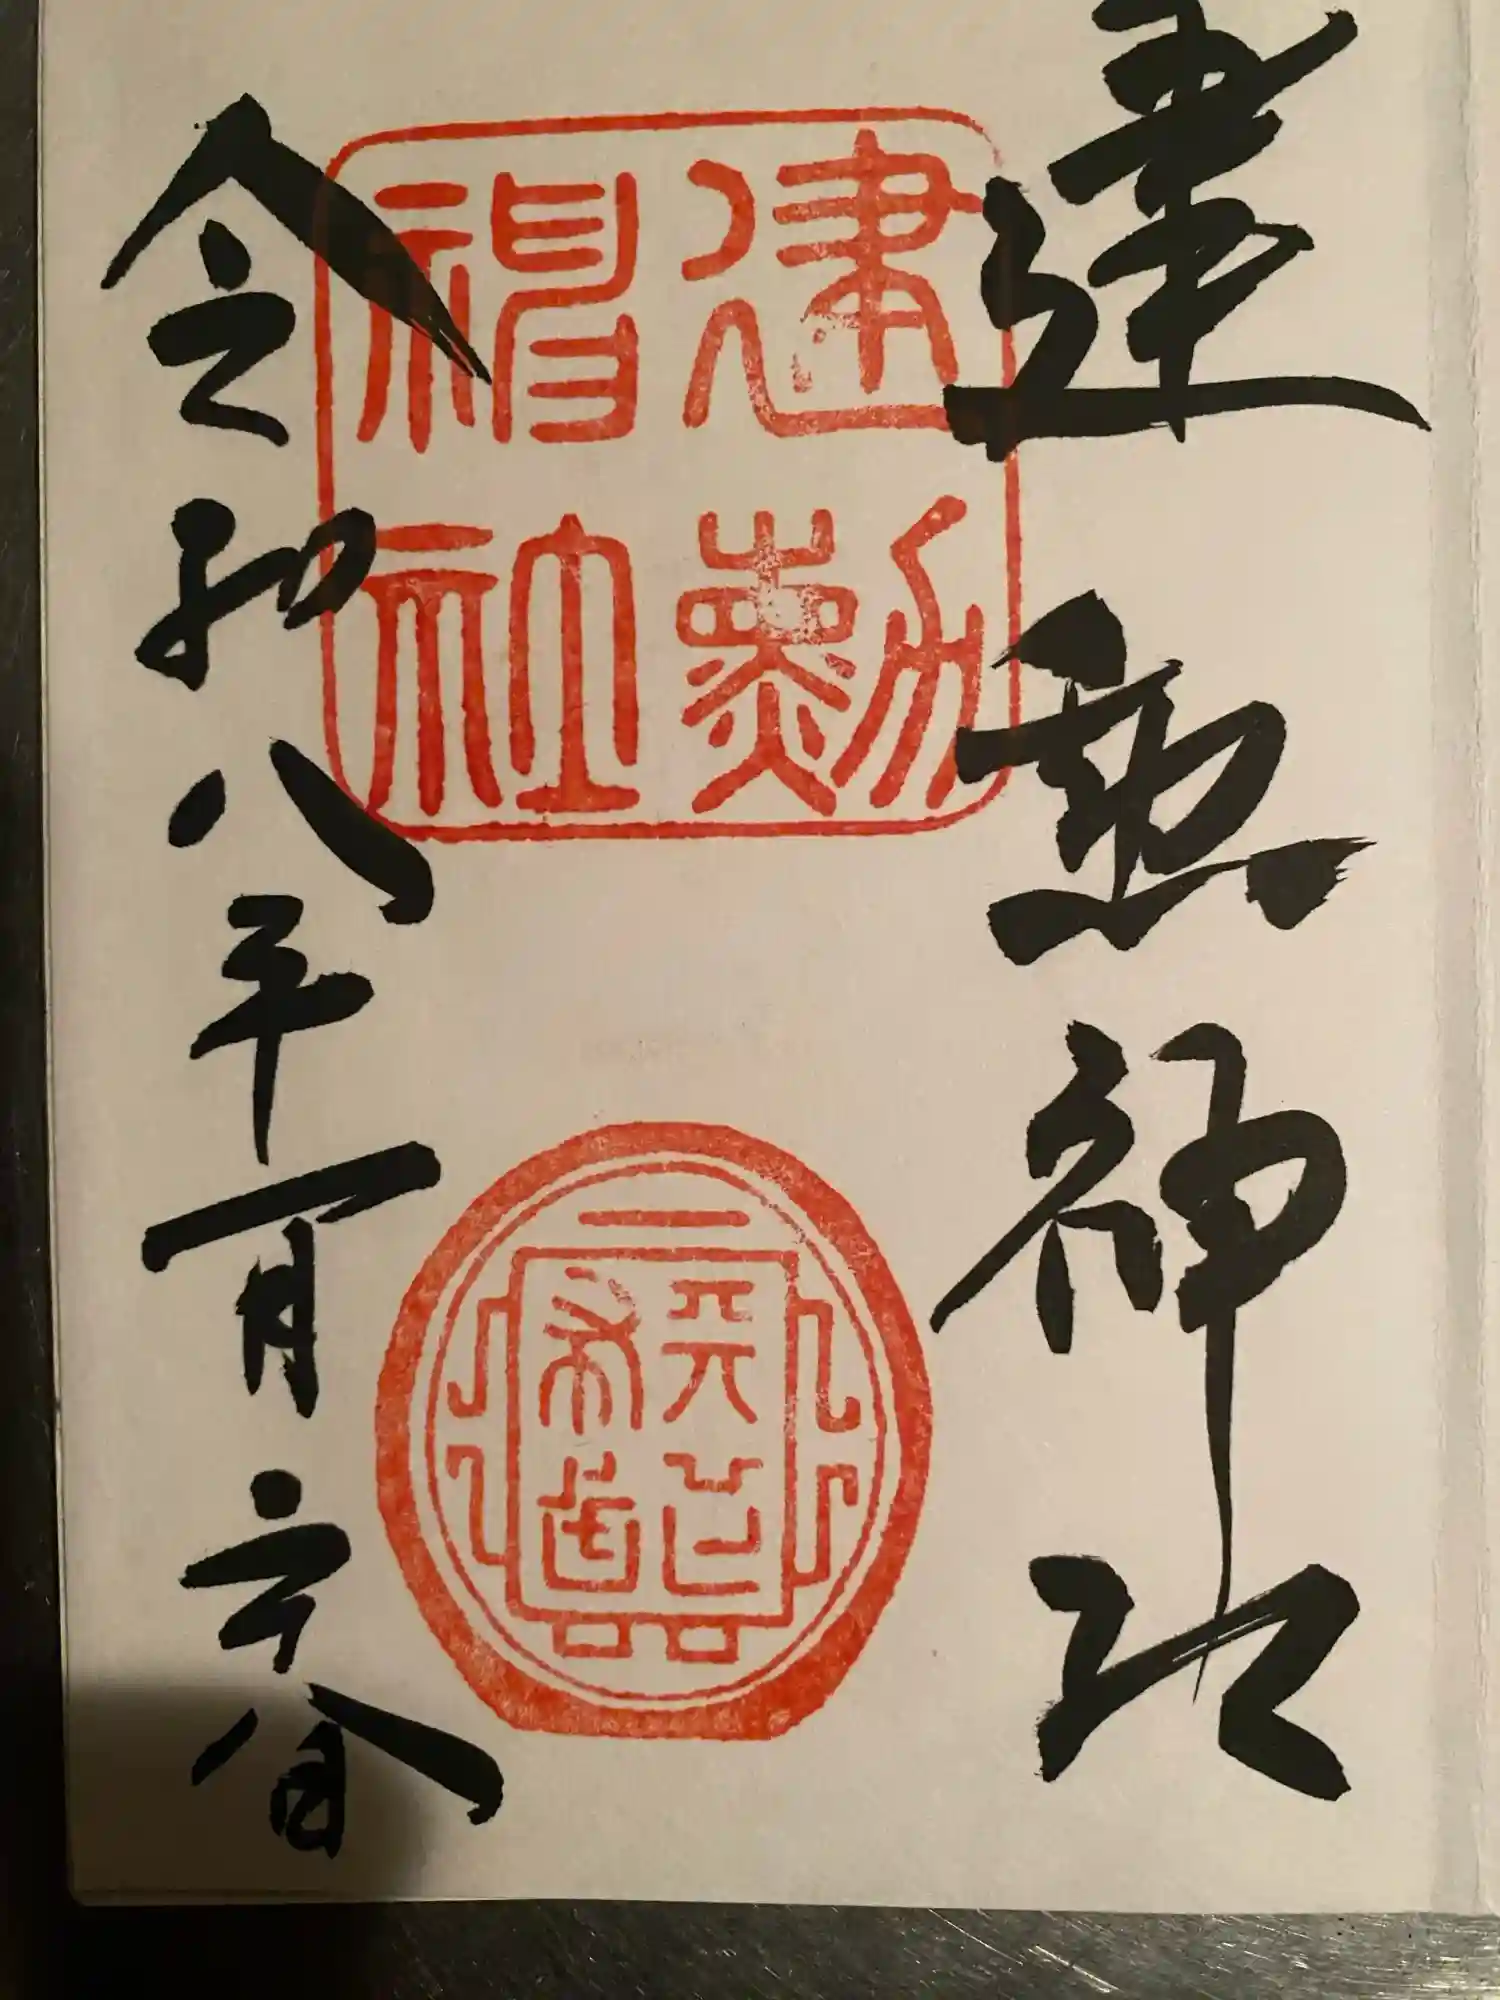 建勲神社
建勲
神社
令和八年一月二十八日